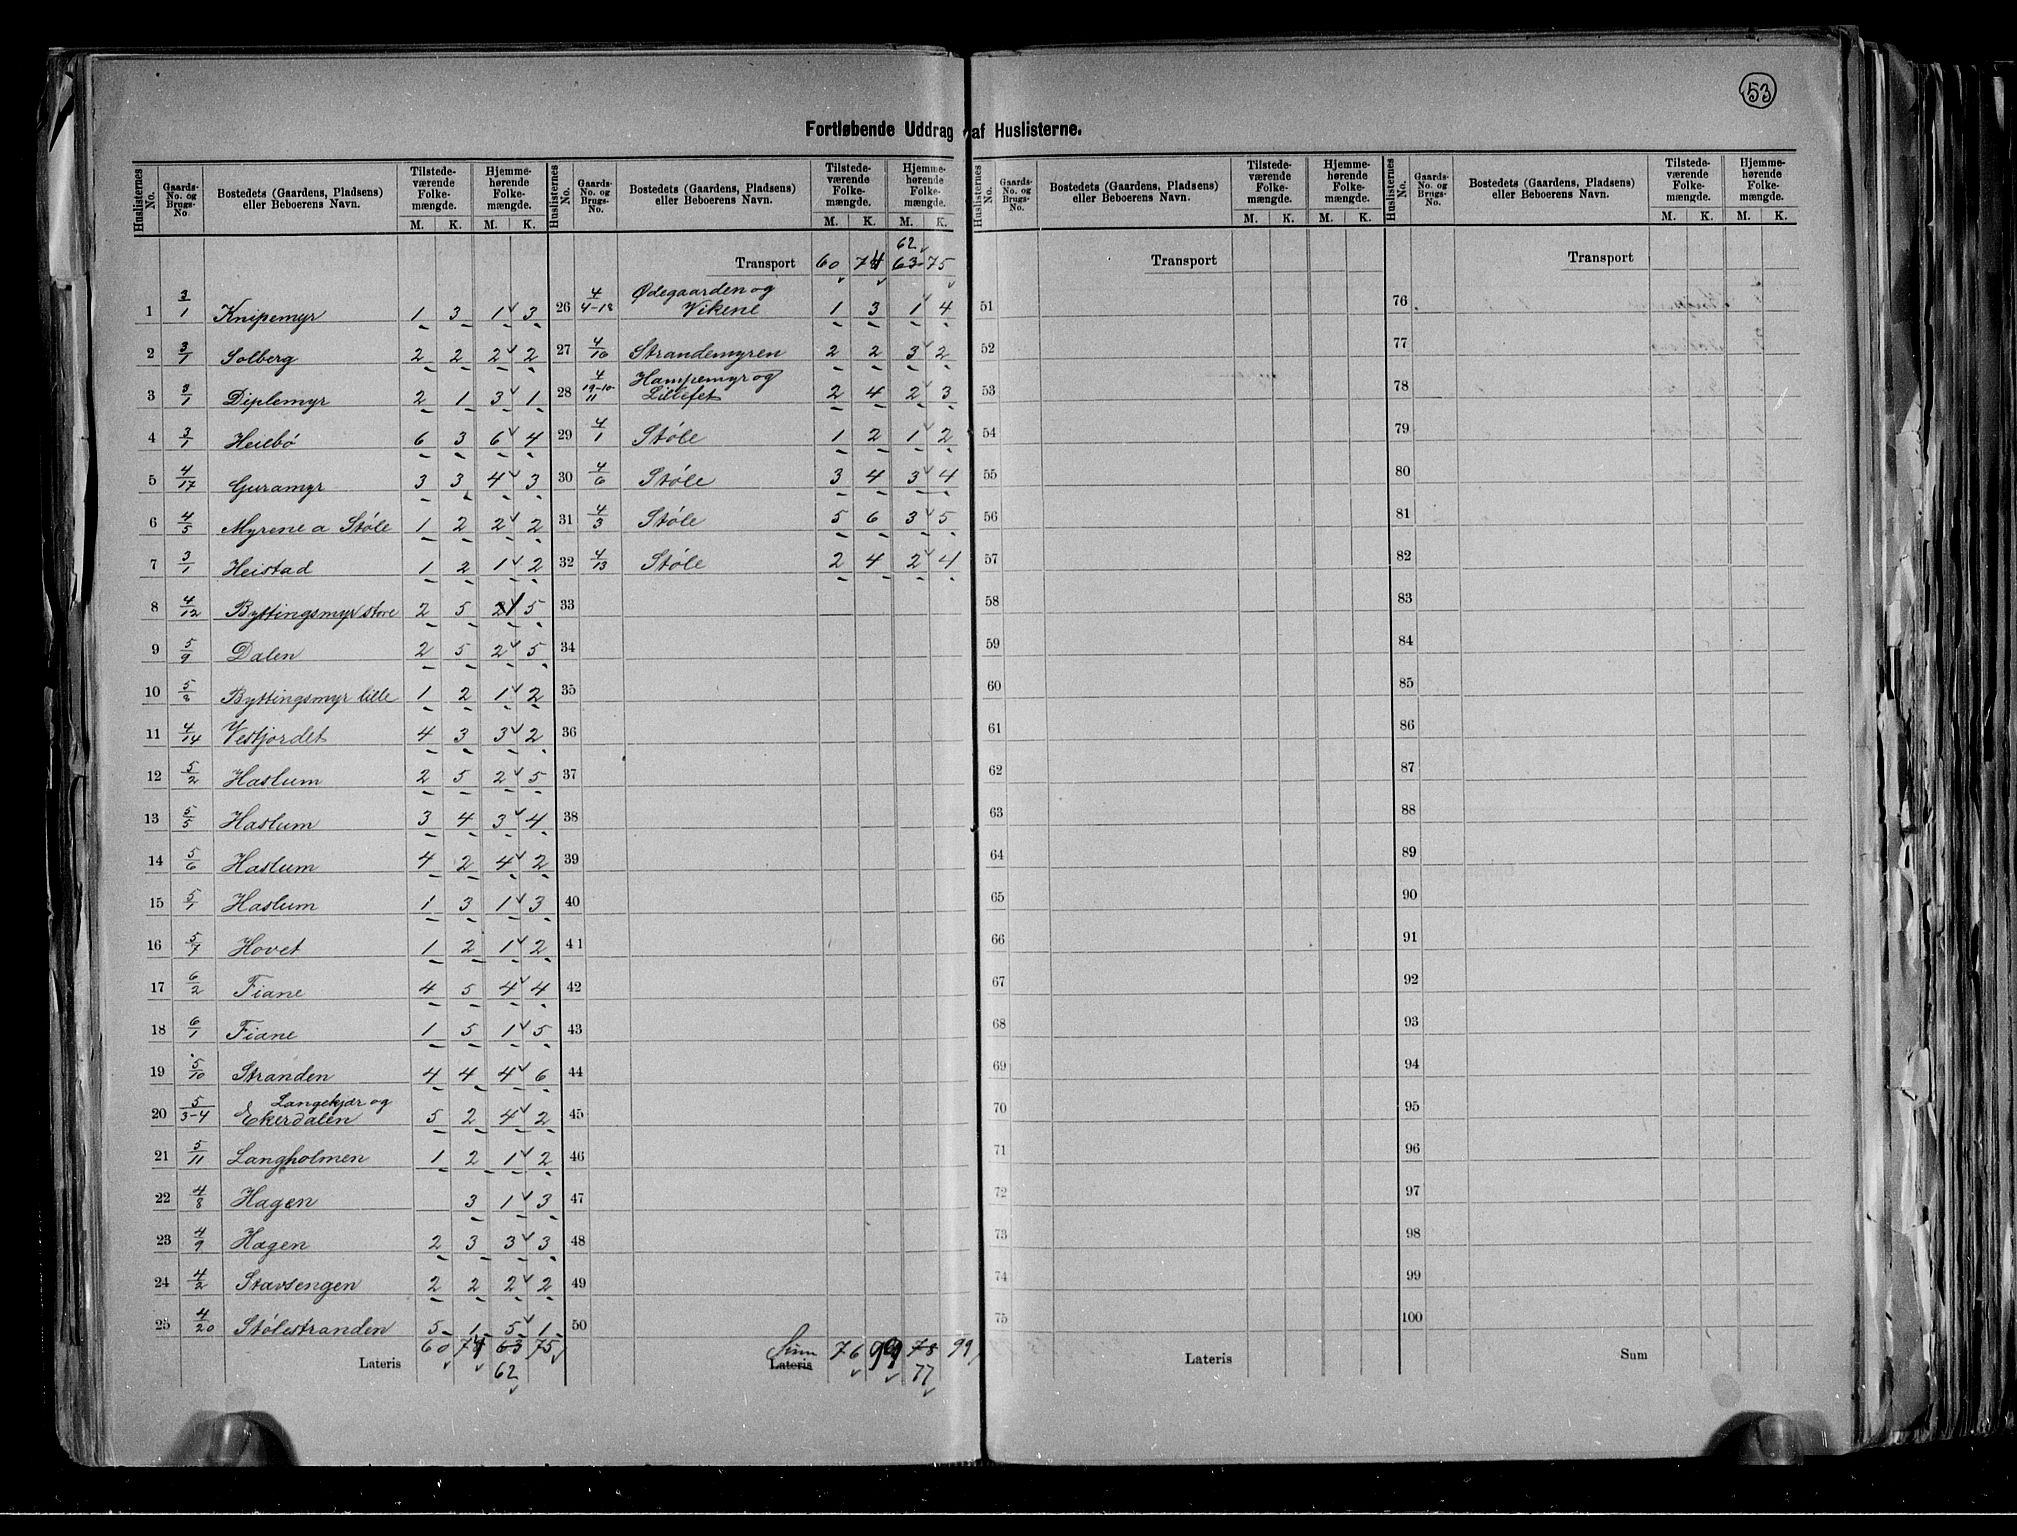 53
Fortløbende Uddrag af Huslisterne.
Huslisternes No. Gaards-No. og Brugs-No. Bostedets (Gaardens, Pladsens) eller Beboerens Navn. Tilstedeværende Folkemængde. M. K. Hjemmehørende Folkemængde. M. K.
1 3/1 Knipemyr 1 3 1 3
2 3/1 Solberg 2 2 2 2
3 3/1 Diplemyr 2 1 3 1
4 3/1 Heilbö 6 3 6 4
5 4/17 Guramyr 3 3 4 3
6 4/5 Myrene a Støle 1 2 2 2
7 3/1 Heistad 1 2 1 2
8 4/12 Byttingsmyr store 2 5 1 5
9 5/9 Dalen 2 5 2 5
10 5/8 Byttingsmyr lille 1 2 1 2
11 4/14 Vestjordet 4 3 3 2
12 5/2 Haslum 2 5 2 5
13 5/5 Haslum 3 4 3 4
14 5/6 Haslum 4 2 4 2
15 5/1 Haslum 1 3 1 3
16 5/7 Hovet 1 2 1 2
17 6/2 Fiane 4 5 4 4
18 6/1 Fiane 1 5 1 5
19 5/10 Stranden 4 4 4 6
20 5/3-4 Langekjær og
Ekerdalen 5 2 4 2
21 5/11 Langholmen 1 2 1 2
22 4/8 Hagen 3 1 3
23 4/9 Hagen 2 3 3 3
24 4/2 Stavsengen 2 2 2 2
25 4/20 Stølestranden 5 1 5 1
Lateris 60 74 63 75
62
Huslisternes No. Gaards-No. og Brugs-No. Bostedets (Gaardens, Pladsens) eller Beboerens Navn. Tilstedeværende Folkemængde. M. K. Hjemmehørende Folkemængde. M. K.
62
Transport 60 74 63 75
26 4/4-18 Ødegaarden og
Vikene 1 3 1 4
27 4/16 Strandemyren 2 2 3 2
28 4/19-10-11 Hampemyr og
Lillefet 2 4 2 3
29 4/1 Støle 1 2 1 2
30 4/6 Støle 3 4 3 4
31 4/3 Støle 5 6 3 5
32 4/13 Støle 2 4 2 4
33
34
35
36
37
38
39
40
41
42
43
44
45
46
47
48
49
50
Sum Lateris 76 99 78 99
77
Huslisternes No. Gaards-No. og Brugs-No. Bostedets (Gaardens, Pladsens) eller Beboerens Navn. Tilstedeværende Folkemængde. M. K. Hjemmehørende Folkemængde. M. K.
Transport
51
52
53
54
55
56
57
58
59
60
61
62
63
64
65
66
67
68
69
70
71
72
73
74
75
Lateris
Huslisternes No. Gaards-No. og Brugs-No. Bostedets (Gaardens, Pladsens) eller Beboerens Navn. Tilstedeværende Folkemængde. M. K. Hjemmehørende Folkemængde. M. K.
Transport
76
77
78
79
80
81
82
83
84
85
86
87
88
89
90
91
92
93
94
95
96
97
98
99
100
Sum